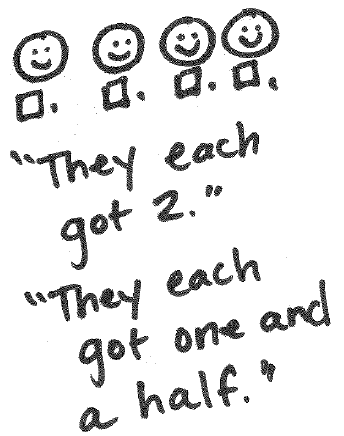 "They each
got 2."
"They each
got one and
a half."